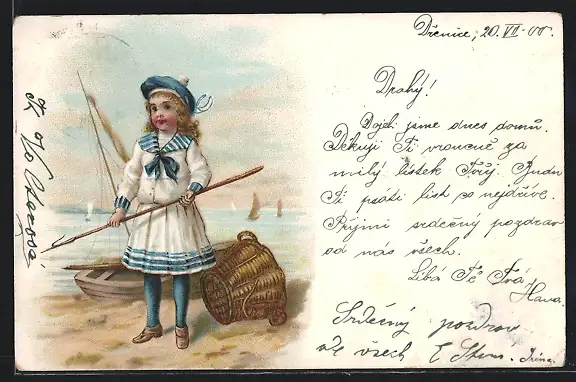 Dřenice, 20. VII. 00.
Drahý!
Dojeli jsme dnes domů.
Děkuji Ti vroucně za
milý lístek Tvůj. Budu
Ti psáti list co nejdříve.
Přijmi srdečný pozdrav
od nás všech.
Líbá Tě Tvá
Hana.
Srdečný pozdrav
ode všech E